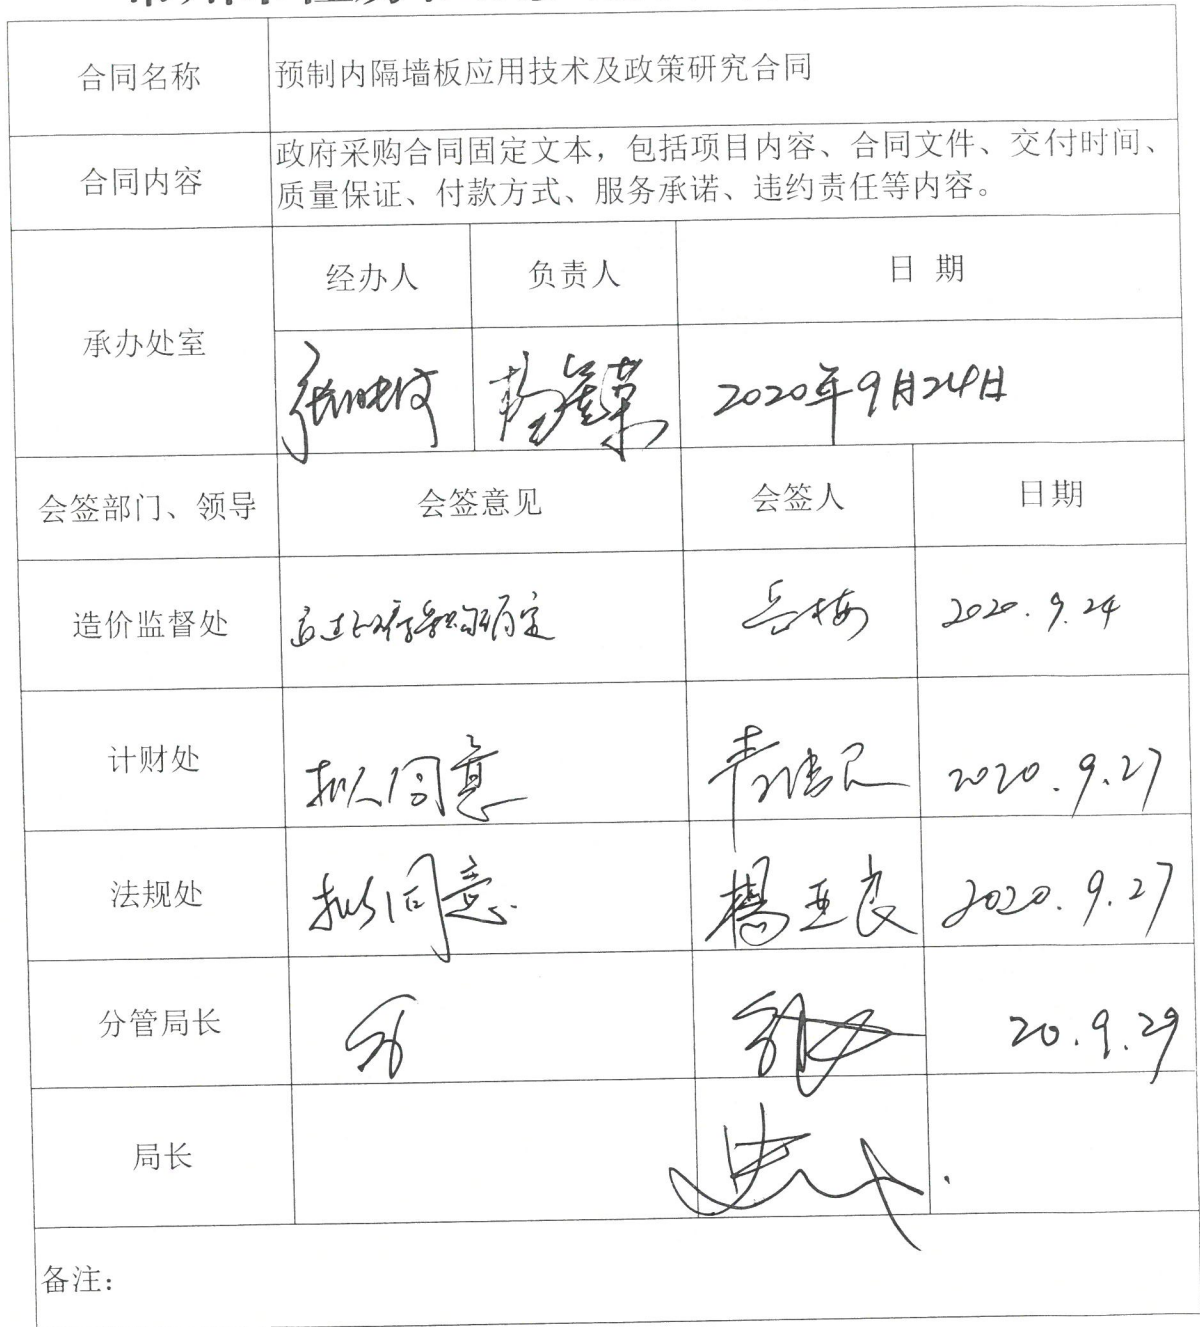 合同名称
预制内隔墙板应用技术及政策研究合同
合同内容
政府采购合同固定文本，包括项目内容、合同文件、交付时间、
质量保证、付款方式、服务承诺、违约责任等内容。
承办处室
经办人
负责人
日 期
2020年9月24日
会签部门、领导
会签意见
会签人
日期
造价监督处
通过政府采购确定
岳梅
2020.9.24
计财处
拟同意
2020.9.27
法规处
拟同意.
楊亚良
2020.9.27
分管局长
20.9.29
局长
备注：